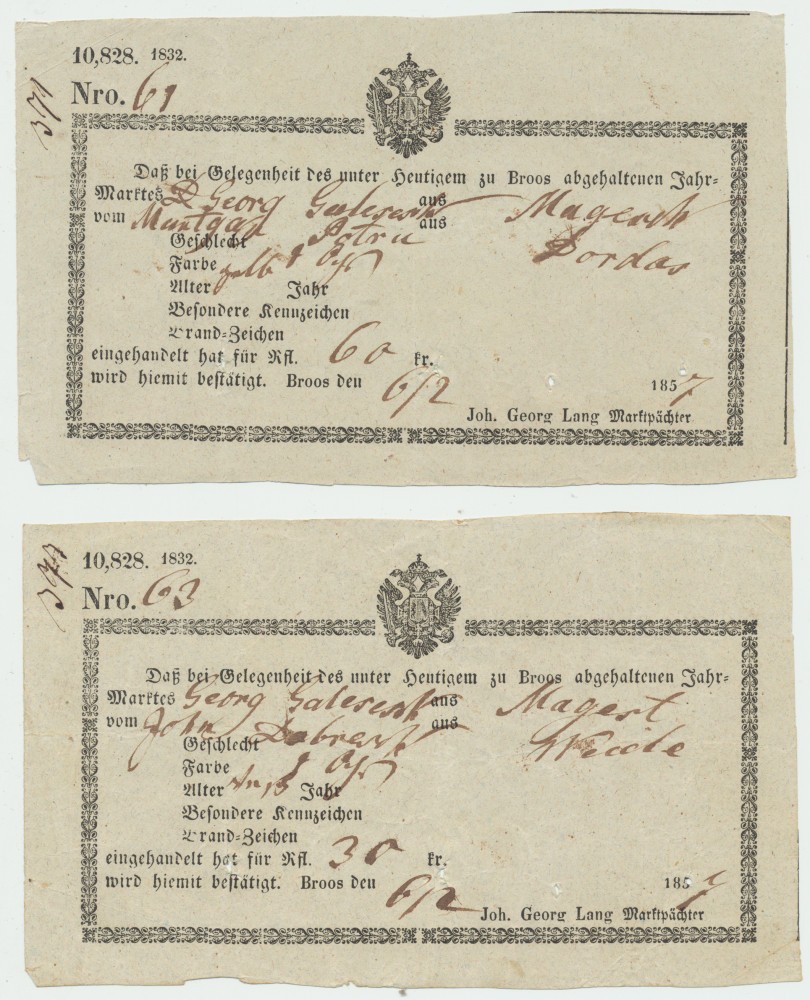 371
10,828. 1832.
Nro. 61
Daß bei Gelegenheit des unter Heutigem zu Broos abgehaltenen Jahr-
Marktes Georg aus
vom Petru aus Dordas
Geschlecht 1
Farbe gelb
Alter Jahr
Besondere Kennzeichen
Brand-Zeichen
eingehandelt hat für Rfl. 60 kr.
wird hiemit bestätigt. Broos den 6/2 1857
Joh. Georg Lang Marktpächter
10,828. 1832.
Nro. 63
Daß bei Gelegenheit des unter Heutigem zu Broos abgehaltenen Jahr-
Marktes Georg aus Magest
vom John aus
Geschlecht 1
Farbe
Alter Jahr
Besondere Kennzeichen
Brand-Zeichen
eingehandelt hat für Rfl. 30 kr.
wird hiemit bestätigt. Broos den 6/2 1857
Joh. Georg Lang Marktpächter